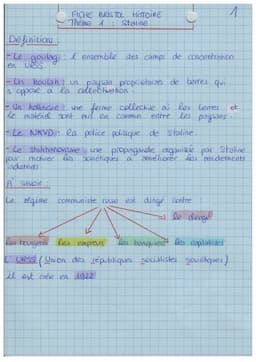 FICHE BRISTOL HISTOIRE
1
Thème 1 : Staline
Définitions :
- Le goulag : l'ensemble des camps de concentration
en URSS
- Un koulak : un paysan propriétaires de terres qui
s'oppose à la collectivisation.
- Un kolkhoze : une ferme collective où les terres et
le matériel sont mis en commun entre les paysans.
- Le NKVD : la police politique de Staline.
- Le stakhanovisme : une propagande organisée par Staline
pour motiver les soviétiques à améliorer les rendements
industriels
A savoir :
Le régime communiste russe est dirigé contre :
Le clergé
Les bourgeois Les empereurs Les banquiers Les capitalistes
L'URSS (Union des républiques socialistes soviétiques)
il est créé en 1922